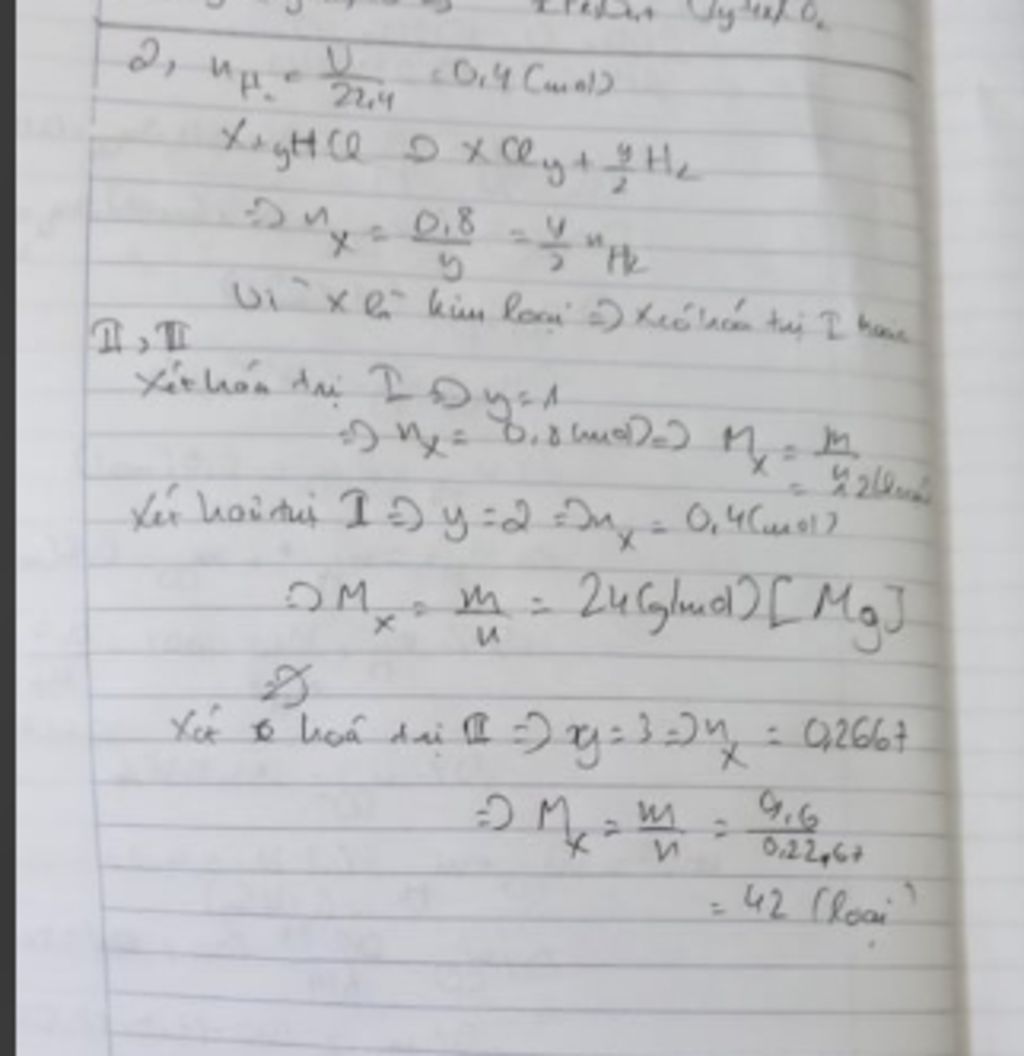 2, n H₂ = V/22,4 = 0,4 (mol)
X + yHCl => XCl y + y/2 H₂
=> n x = 0,8/y = y/2 n H₂
Vì X là kim loại => Xét hoá trị I hoặc
II, III
Xét hoá trị I => y = 1
=> n x = 0,8 (mol) => M x = m/n
= 12 (loại)
Xét hoá trị I => y = 2 => n x = 0,4 (mol)
=> M x = m/n = 24 (g/mol) [Mg]
Xét hoá trị III => y = 3 => n x = 0,2667
=> M x = m/n = 9,6/0,22,67
= 42 (loại)